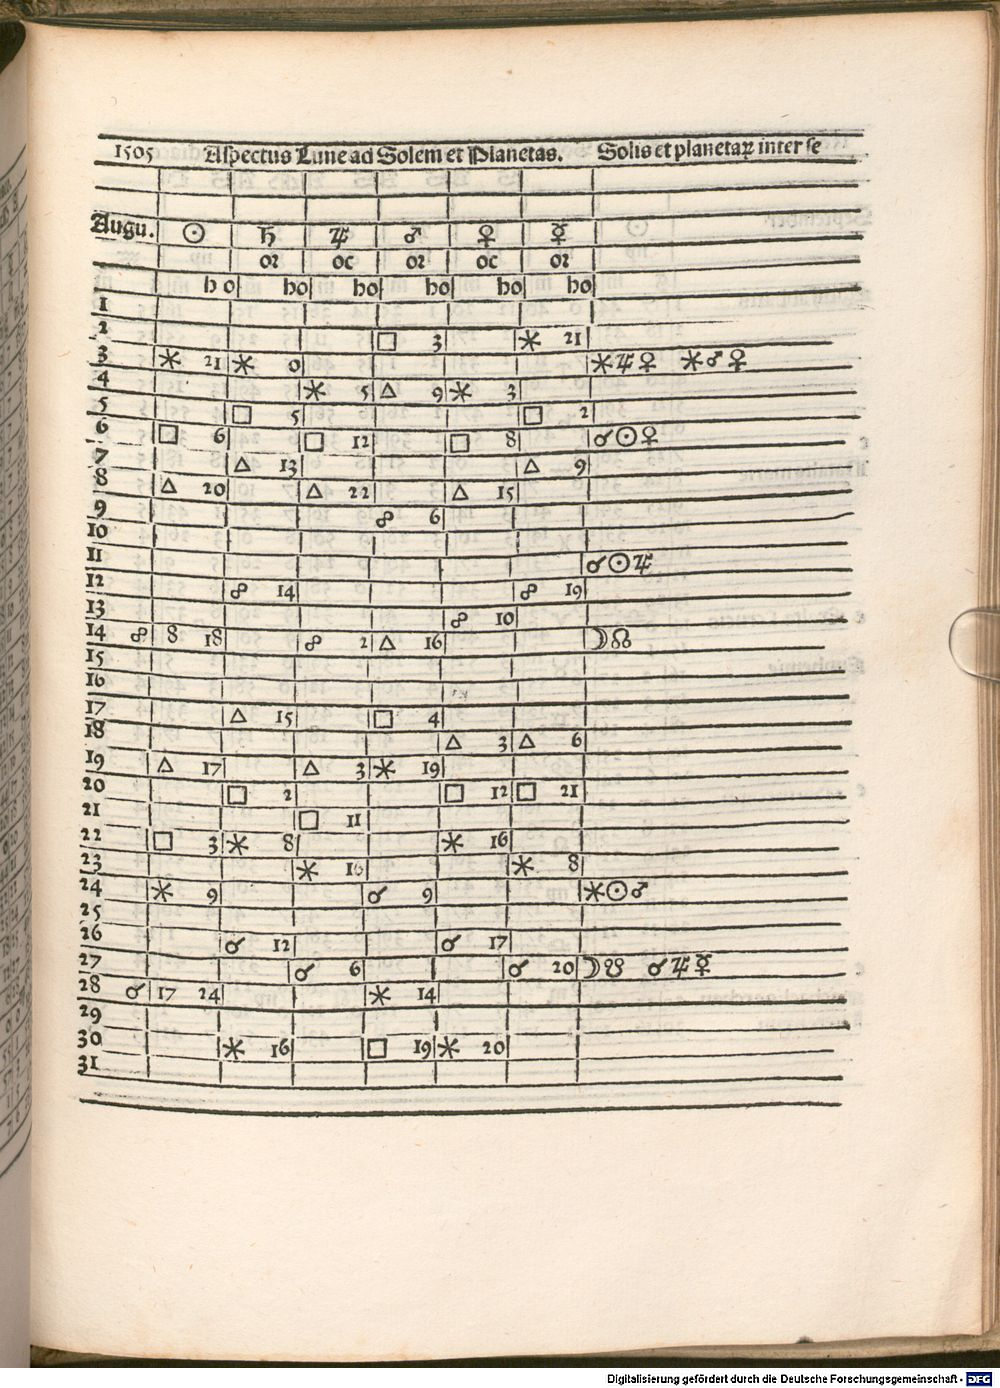 1505 Aspectus Lune ad Solem et Planetas. Solis et planetaꝝ inter se
Augu. ☉ ♄ ♃ ♂ ♀ ☿
or oc or oc or
ho ho ho ho ho ho
1
2 □ 3 ⚹ 21
3 ⚹ 21 ⚹ 0 ⚹♃♀ ⚹♂♀
4 ⚹ 5 △ 9 ⚹ 3
5 □ 5 □ 2
6 □ 6 □ 12 □ 8 ☌☉♀
7 △ 13 △ 9
8 △ 20 △ 22 △ 15
9 ☍ 6
10
11 ☌☉♃
12 ☍ 14 ☍ 19
13 ☍ 10
14 ☍ 8 18 ☍ 2 △ 16 ☽☊
15
16
17 △ 15 □ 4
18 △ 3 △ 6
19 △ 17 △ 3 ⚹ 19
20 □ 2 □ 12 □ 21
21 □ 11
22 □ 3 ⚹ 8 ⚹ 16
23 ⚹ 16 ⚹ 8
24 ⚹ 9 ☌ 9 ⚹☉♂
25
26 ☌ 12 ☌ 17
27 ☌ 6 ☌ 20 ☽☋ ☌♃☿
28 ☌ 17 24 ⚹ 14
29
30 ⚹ 16 □ 19 ⚹ 20
31
Digitalisierung gefördert durch die Deutsche Forschungsgemeinschaft - DFG